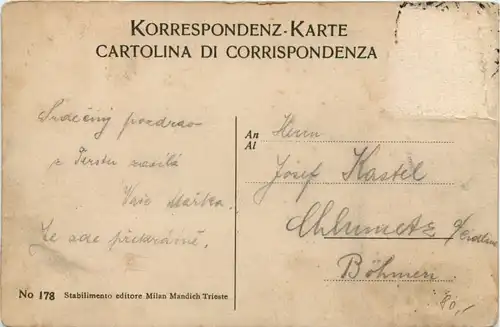 KORRESPONDENZ-KARTE
CARTOLINA DI CORRISPONDENZA
Srdečný pozdrav
z Terstu zasílá
Je zde překrásně.
An
Al
Herrn
Josef Kastel
Chlumetz
Böhmen
80,-
No 178 Stabilimento editore Milan Mandich Trieste